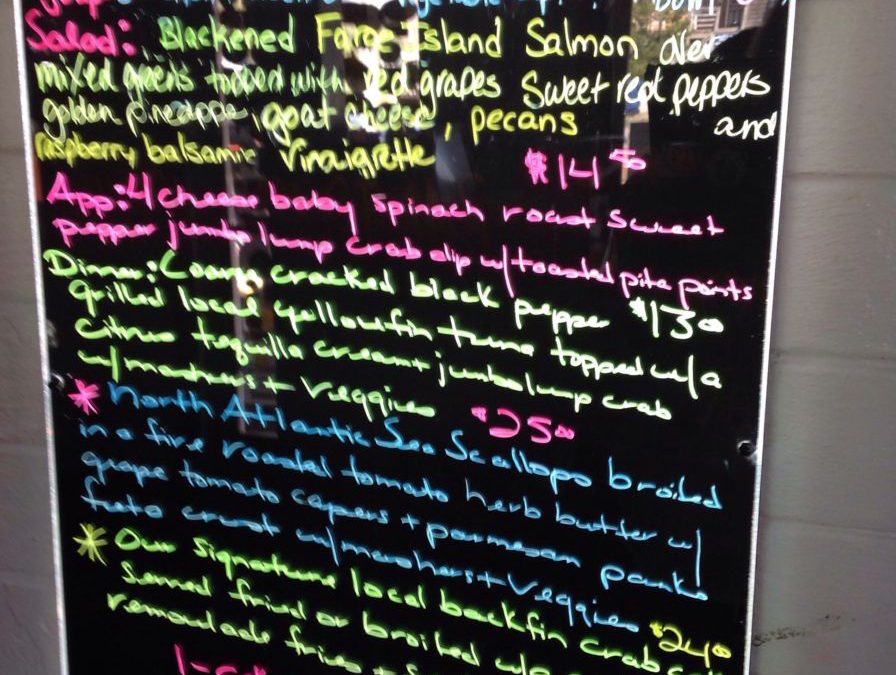 Salad: Blackened Faroe Island Salmon over
mixed greens topped with red grapes Sweet red peppers
golden pineapple, goat cheese, pecans and
raspberry balsamic vinaigrette $14 50
App: 4 cheese baby spinach roast sweet
pepper jumbo lump crab dip w/toasted pita points
$13 00
Dinner: Coarse cracked black pepper
grilled local yellowfin tuna topped w/a
citrus tequilla cream + jumbo lump crab
w/mashers + veggies $25 00
* North Atlantic Sea Scallops broiled
in a fire roasted tomato herb butter w/
grape tomato capers + parmesan panko
feta crust w/mashers + veggies $24 00
* Our signature local backfin crab
served fried or broiled w/a
remoulade fries +